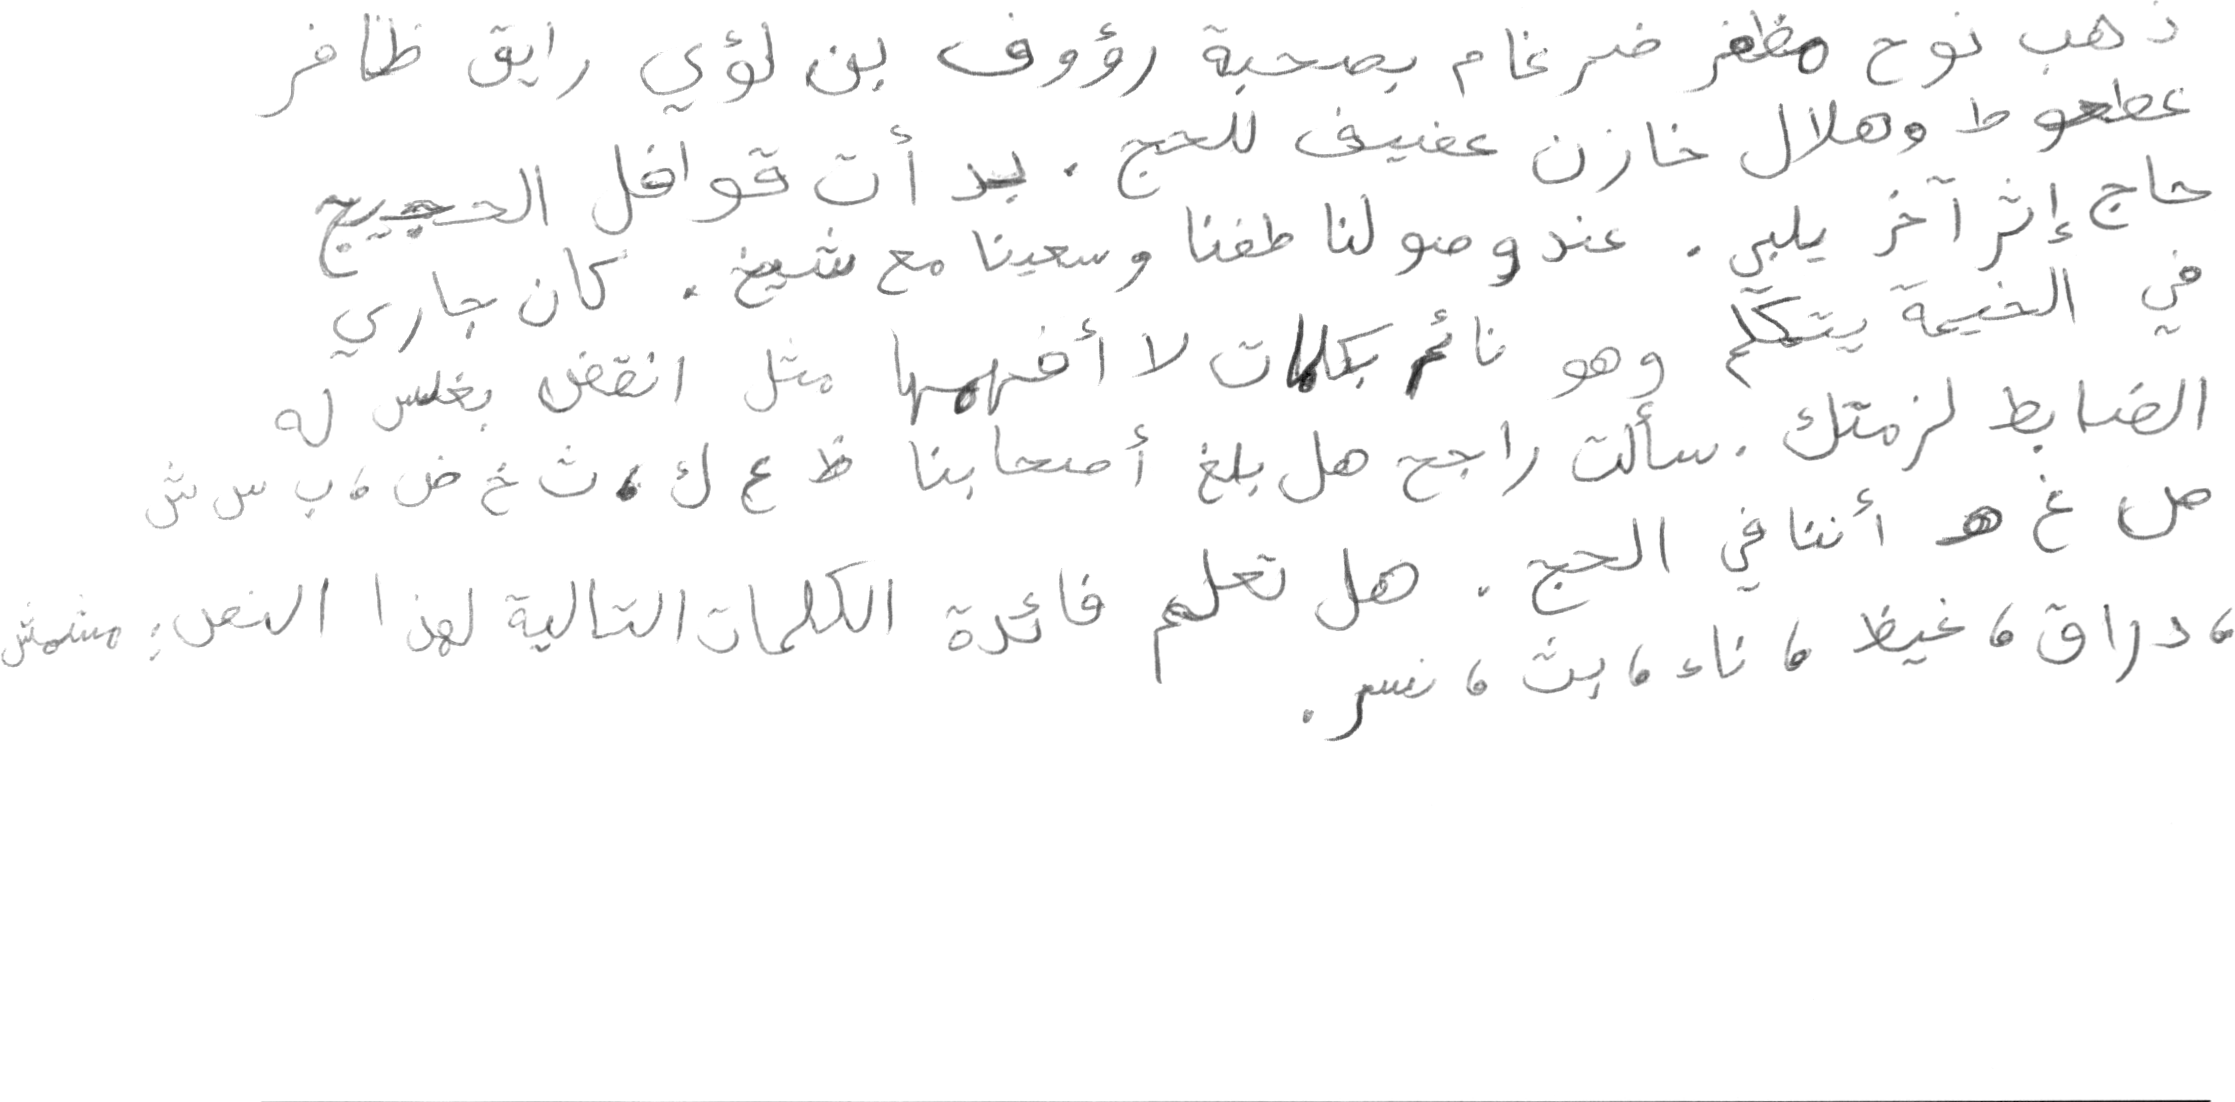 ذهب نوح مظفر ضرغام بصحبة رؤوف بن لؤي رايق ظافر
عطعوط وهلال خازن عفيف للحج . بدأت قوافل الحجيج
حاج إثر آخر يلبي . عند وصولنا طفنا وسعينا مع شيخ . كان جاري
في الخيمة يتكلم وهو نائم بكلمات لا أفهمها مثل انقض بغلس له
الضابط لزمتك . سألت راجح هل بلغ أصحابنا ظ ع ك ، ث خ ض ، ب س ش
ص غ ه أننا في الحج . هل تعلم فائدة الكلمات التالية لهذا النص : مشمش
، دراق ، غيظ ، ناء ، بث ، نسر .